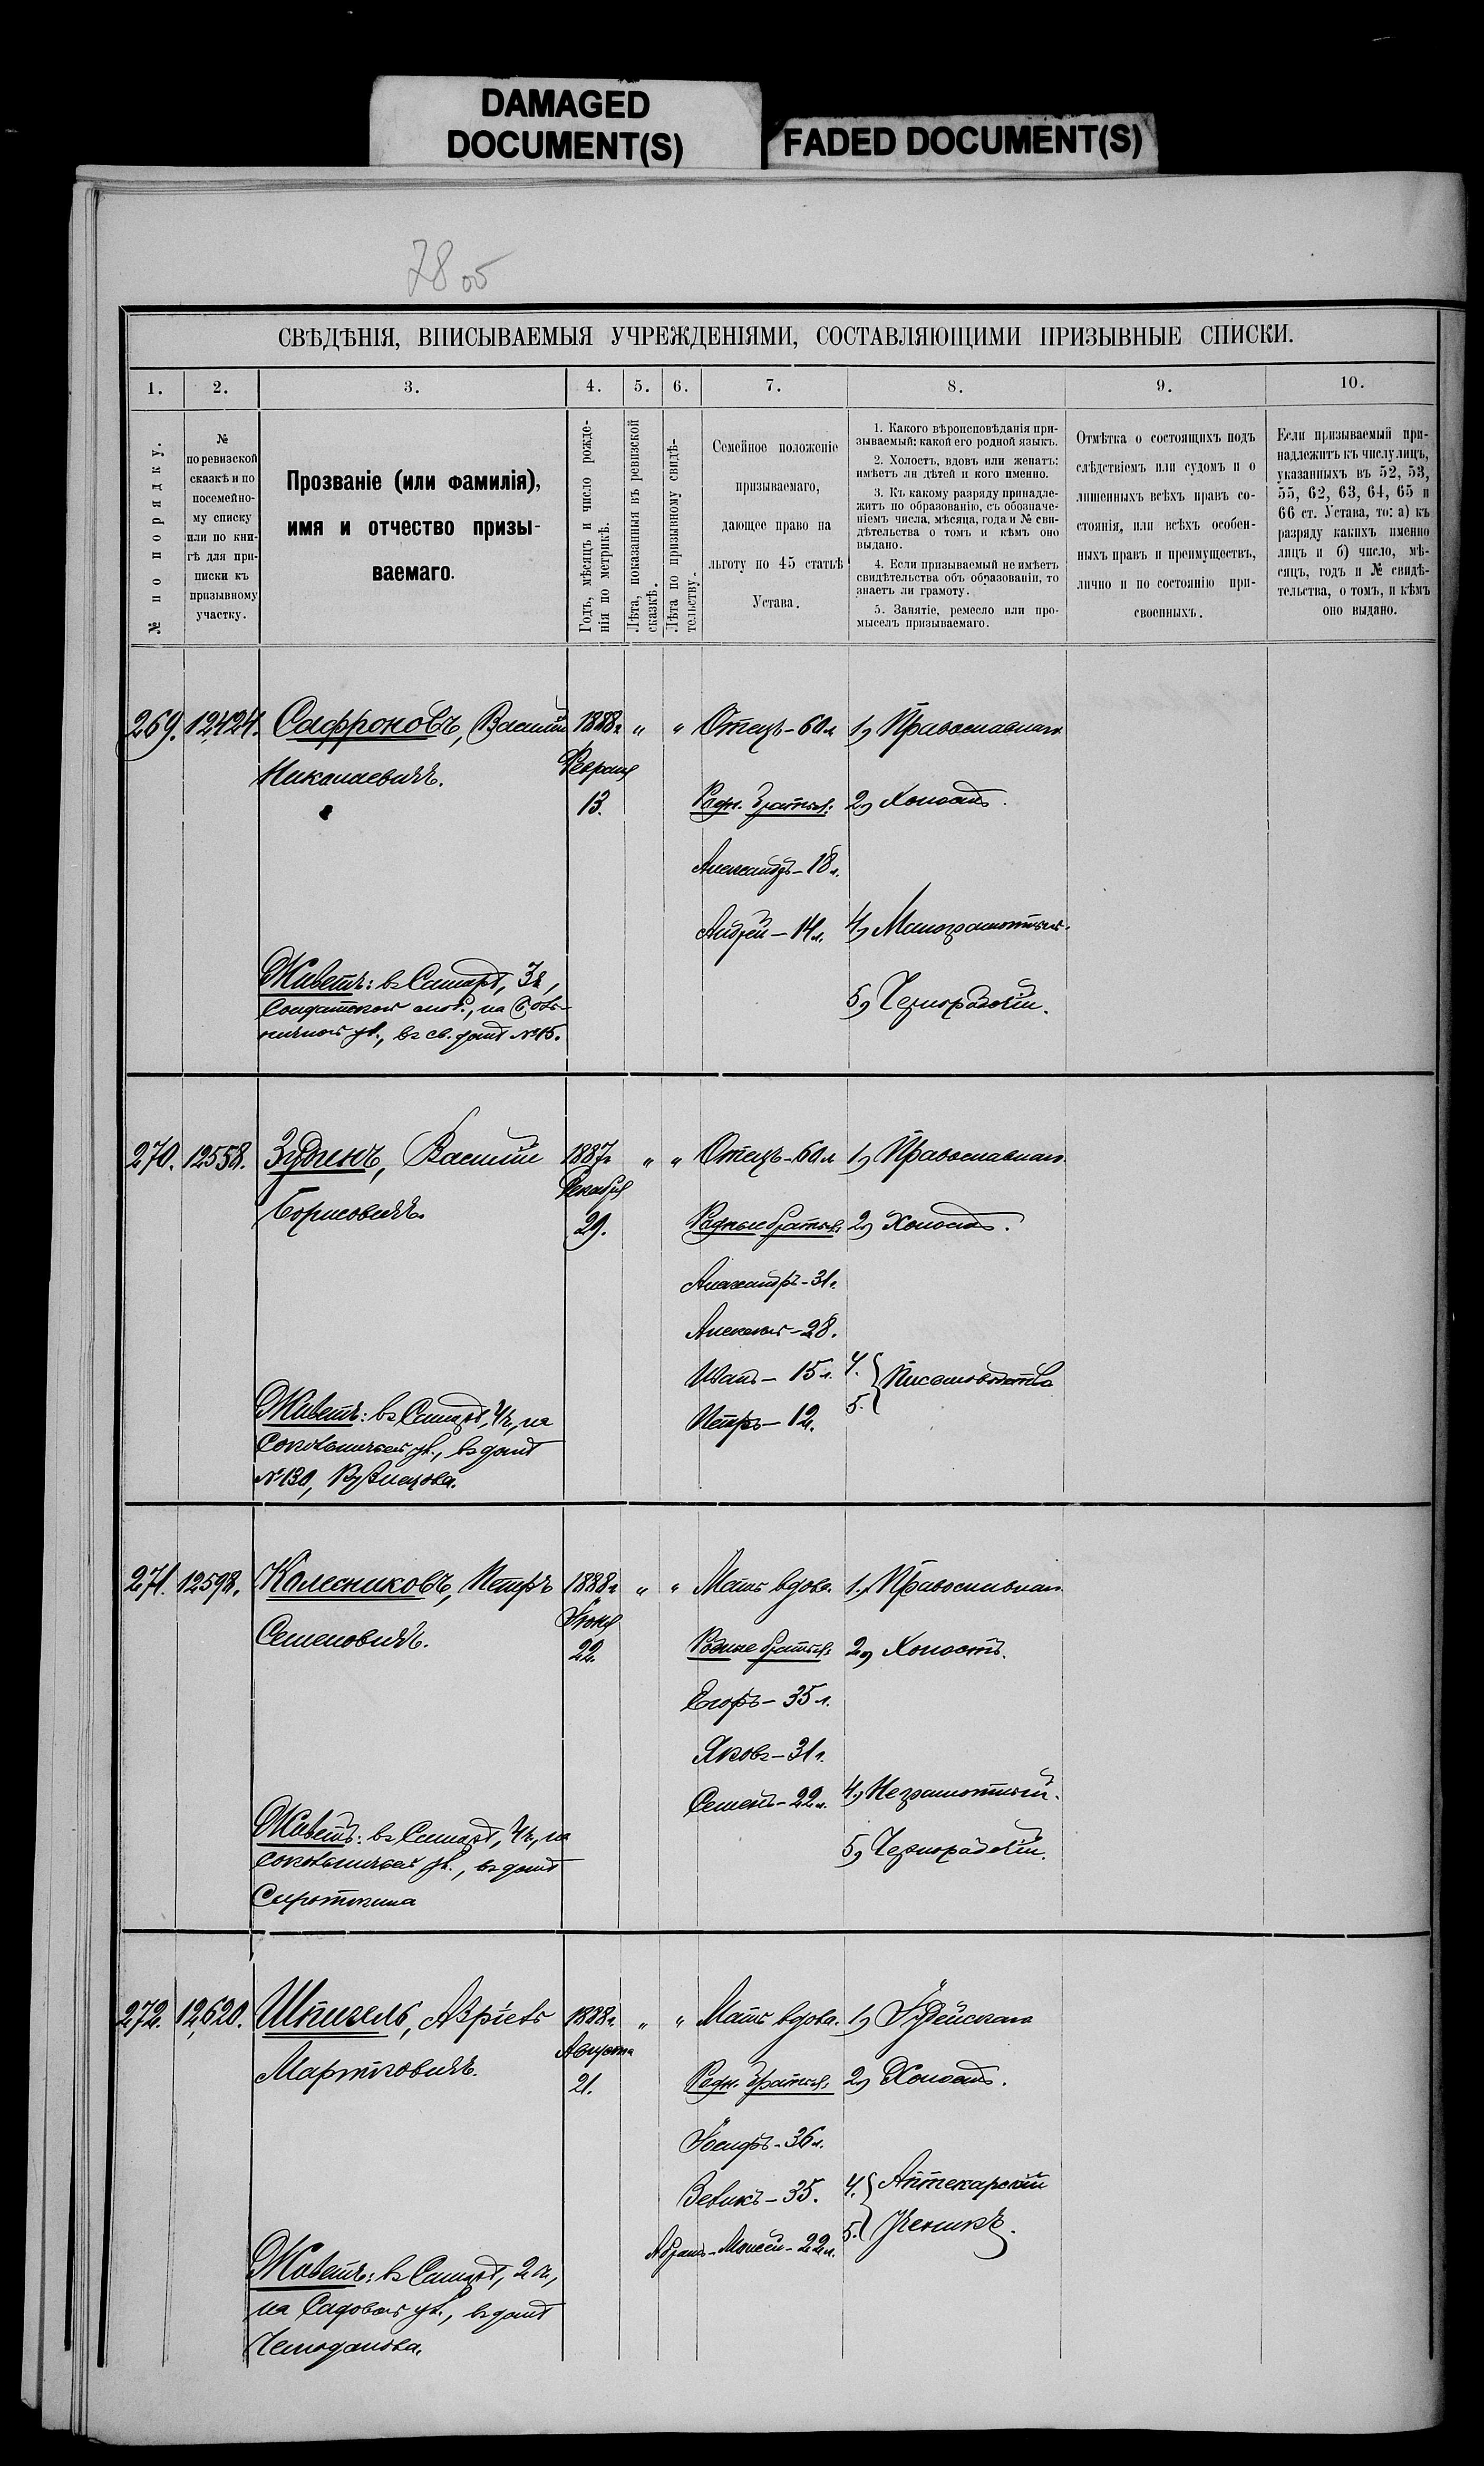 DAMAGED
DOCUMENT(S)
FADED DOCUMENT(S)
78 об
СВѢДѢНІЯ, ВПИСЫВАЕМЫЯ УЧРЕЖДЕНІЯМИ, СОСТАВЛЯЮЩИМИ ПРИЗЫВНЫЕ СПИСКИ.
1.
2.
3.
4.
5.
6.
7.
8.
9.
10.
№ по порядку.
№
по ревизской
сказкѣ и по
посемейно-
му списку
или по кни-
гѣ для при-
писки къ
призывному
участку.
Прозваніе (или фамилія),
имя и отчество призы-
ваемаго.
Годъ, мѣсяцъ и число рожде-
нія по метрикѣ.
Лѣта, показанныя въ ревизской
сказкѣ.
Лѣта по призывному свидѣ-
тельству.
Семейное положеніе
призываемаго,
дающее право на
льготу по 45 статьѣ
Устава.
1. Какого вѣроисповѣданія при-
зываемый; какой его родной языкъ.
2. Холостъ, вдовъ или женатъ:
имѣетъ ли дѣтей и кого именно.
3. Къ какому разряду принадле-
житъ по образованію, съ обозначе-
ніемъ числа, мѣсяца, года и № сви-
дѣтельства о томъ и кѣмъ оно
выдано.
4. Если призываемый не имѣетъ
свидѣтельства объ образованіи, то
знаетъ ли грамоту.
5. Занятіе, ремесло или про-
мыселъ призываемаго.
Отмѣтка о состоящихъ подъ
слѣдствіемъ или судомъ и о
лишенныхъ всѣхъ правъ со-
стоянія, или всѣхъ особен-
ныхъ правъ и преимуществъ,
лично и по состоянію при-
своенныхъ.
Если призываемый при-
надлежитъ къ числу лицъ,
указанныхъ въ 52, 53,
55, 62, 63, 64, 65 и
66 ст. Устава, то: а) къ
разряду какихъ именно
лицъ и б) число, мѣ-
сяцъ, годъ и № свидѣ-
тельства, о томъ, и кѣмъ
оно выдано.
269. 12424. Сафроновъ, Василій 1888г. " " Отецъ - 60 л. 1) Православнаго
Николаевичъ. Февраля
13. Родн. братья: 2) Холостъ.
Александръ - 18 л.
Андрей - 14 л. 4) Малограмотный.
Живетъ: въ Самарѣ, 3 ч,
Солдатской слоб., на
ул., въ св. домѣ № 15.
5) Чернорабочій.
270. 12558. Зудинъ, Василій 1887г. " " Отецъ - 60 л. 1) Православнаго
Борисовичъ. Декабря
29. Родные братья: 2) Холостъ.
Александръ - 31 г.
Алексѣй - 28.
Иванъ - 15 л. 4.
Петръ - 12. 5. Письмоводство
Живетъ: въ Самарѣ, 4 ч, на
Сокольничьей ул., въ домѣ
№ 130, Кузнецова.
271. 12598. Колесниковъ, Петръ 1888г. " " Мать вдова. 1) Православнаго
Семеновичъ. Іюня
22. Родные братья: 2) Холостъ.
Егоръ - 35 л.
Яковъ - 31 г.
Семенъ - 22 л. 4) Неграмотный.
Живетъ: въ Самарѣ, 4 ч, на
Сокольничьей ул., въ домѣ
Сироткина
5) Чернорабочій.
272. 12,620. Шпигель, Азріель 1888г. " " Мать вдова. 1) Іудейскаго
Марткovичъ. Августа
21. Родн. братья: 2) Холостъ.
Іосифъ - 36 л.
Зеликъ - 35. 4. Аптекарскій
Абрамъ-Моисей - 22 л. 5. Ученикъ.
Живетъ: въ Самарѣ, 2 ч,
на Садовой ул., въ домѣ
Чемоданова.